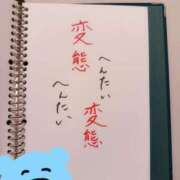 変態
へんたい
変態
へんたい